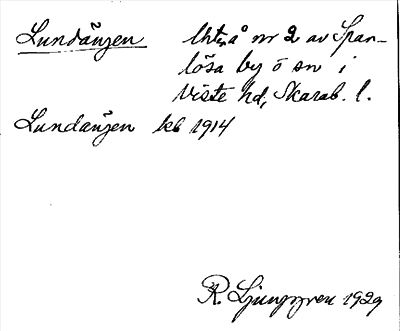 Lundängen Utr, å nr 2 av Span-
lösa by ö sn i
Viste hd, Skarab. l.
Lundängen kb 1914
R. Ljunggren 1929